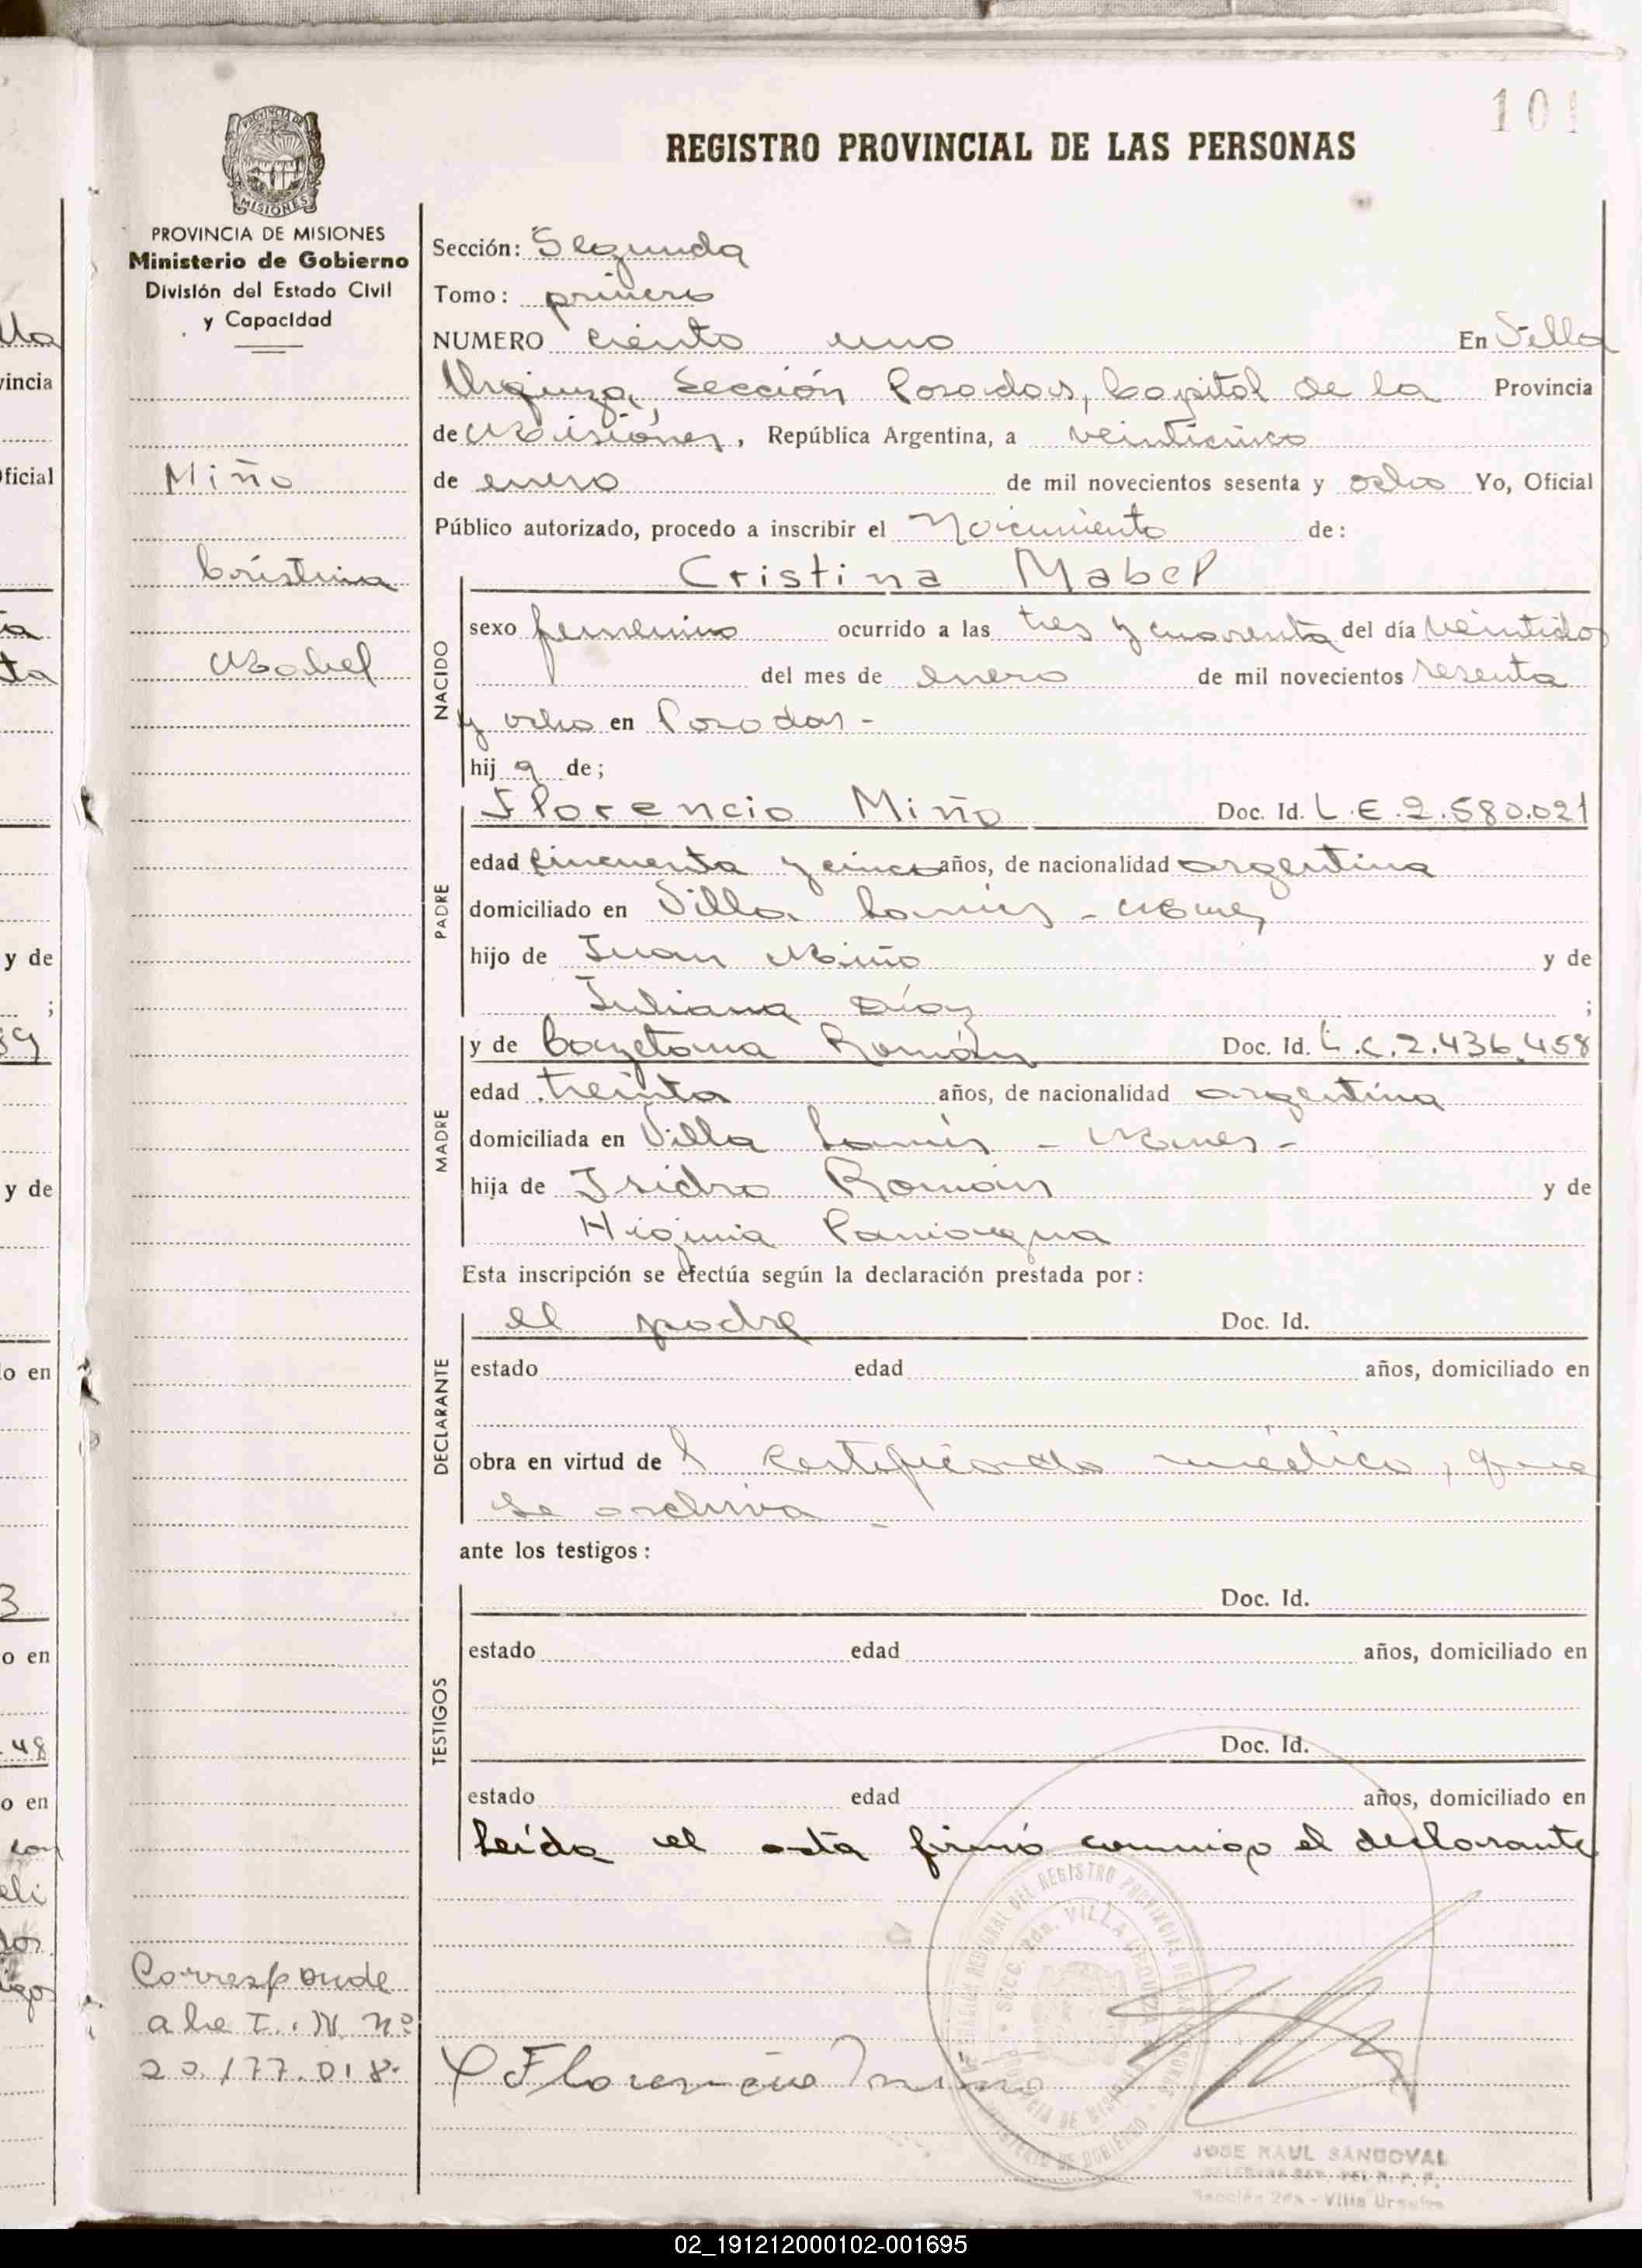 101
REGISTRO PROVINCIAL DE LAS PERSONAS
PROVINCIA DE MISIONES
Ministerio de Gobierno
División del Estado Civil
y Capacidad
Miño
Cristina
Mabel
Corresponde
a la I. N. nº
20.177.018.
Sección: Segunda
Tomo: primero
NUMERO ciento uno En Villa
Urquiza, Sección Posadas, Capital de la Provincia
de Misiones, República Argentina, a veinticinco
de enero de mil novecientos sesenta y ocho Yo, Oficial
Público autorizado, procedo a inscribir el Nacimiento de:
Cristina Mabel
NACIDO
sexo femenino ocurrido a las tres y cuarenta del día veintidos
del mes de enero de mil novecientos sesenta
y ocho en Posadas -
hij a de;
PADRE
Florencio Miño Doc. Id. L.E.2.580.021
edad cincuenta y cinco años, de nacionalidad argentina
domiciliado en Villa Lanús - Mnes,
hijo de Juan Miño y de
Juliana Díaz ;
MADRE
y de Cayetana Román Doc. Id. L.C.2.436.458
edad treinta años, de nacionalidad argentina
domiciliada en Villa Lanús - Mnes -
hija de Isidro Román y de
Higinia Paniagua
Esta inscripción se efectúa según la declaración prestada por:
DECLARANTE
el padre Doc. Id.
estado edad años, domiciliado en
obra en virtud de l certificado médico, que
se archiva -
ante los testigos:
TESTIGOS
Doc. Id.
estado edad años, domiciliado en
Doc. Id.
estado edad años, domiciliado en
Leída el acta firmó conmigo el declarante
X Florencio Miño
JOSE RAUL SANDOVAL
Sección 2da - Villa Urquiza
02_191212000102-001695